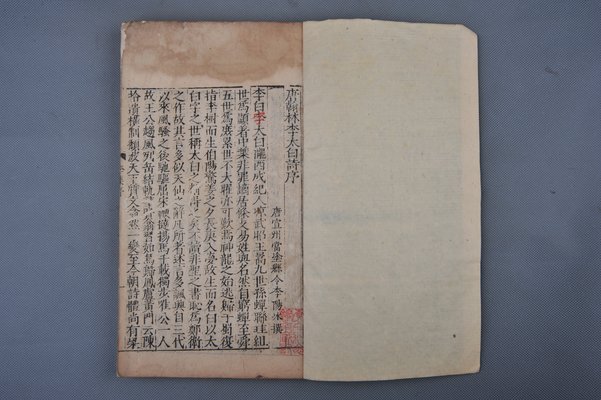 唐翰林李太白詩序
唐宣州當塗縣令李陽冰撰
李白字太白隴西成紀人涼武昭王暠九世孫蟬聯珪組
世爲顯著中葉非罪謫居條支易姓與名然自窮蟬至舜
五世爲庶累世不大曜亦可歎焉神龍之始逃歸于蜀復
指李樹而生伯陽驚姜之夕長庚入夢故生而名白以太
白字之世稱太白之精得之矣不讀非聖之書恥爲鄭衛
之作故其言多似天仙之辭凡所著述言多諷興自三代
以來風騷之後馳驅屈宋鞭撻揚馬千載獨步唯公一人
故王公趨風列岳結軌羣賢翕習如鳥歸鳳盧黃門云陳
拾遺橫制頹波天下質文翕然一變至今朝詩體尚有梁